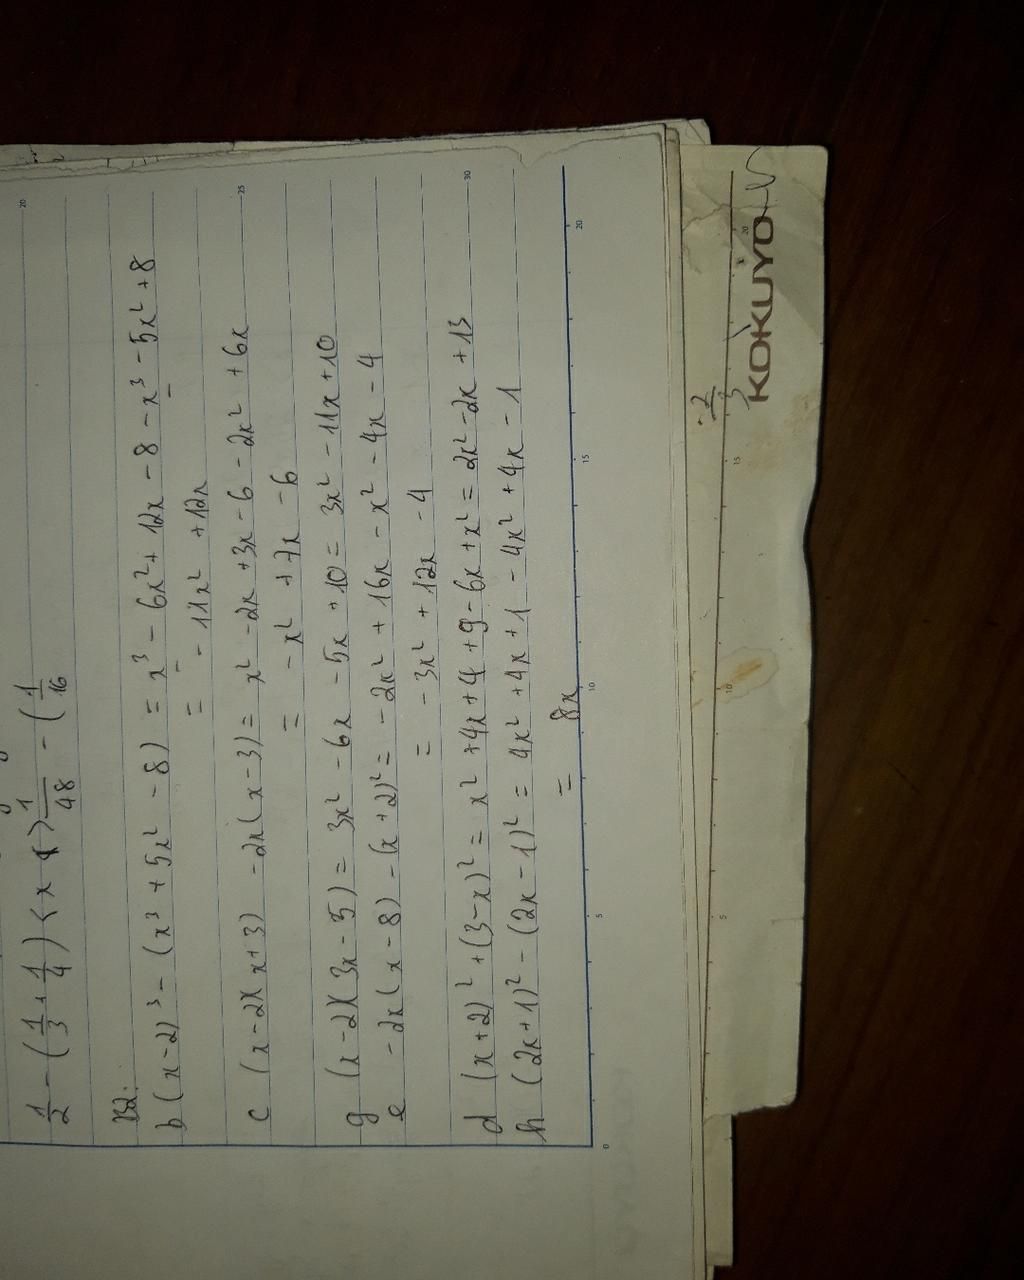 1/2 - (1/3 + 1/4) < x < 1/48 - (1/16
B2:
b (x-2)³ - (x³ + 5x² - 8) = x³ - 6x² + 12x - 8 - x³ - 5x² + 8
= - 11x² + 12x
c (x-2)(x+3) - 2x(x-3) = x² - 2x + 3x - 6 - 2x² + 6x
= - x² + 7x - 6
g (x-2)(3x-5) = 3x² - 6x - 5x + 10 = 3x² - 11x + 10
e -2x(x-8) - (x+2)² = - 2x² + 16x - x² - 4x - 4
= - 3x² + 12x - 4
d (x+2)² + (3-x)² = x² + 4x + 4 + 9 - 6x + x² = 2x² - 2x + 13
h (2x+1)² - (2x-1)² = 4x² + 4x + 1 - 4x² + 4x - 1
= 8x
20
25
30
0 5 10 15 20
-2/3
5 10 15 20
KOKUYO